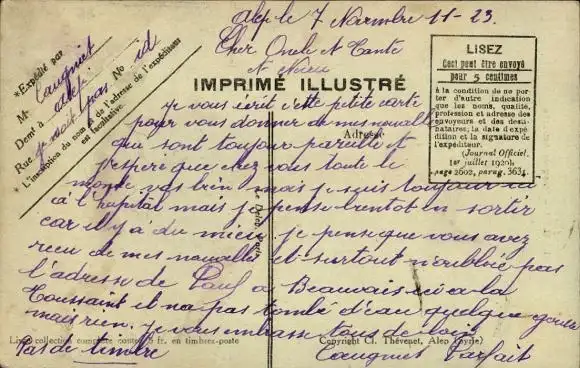 Alep le 7 Novembre 11-23
Cher Oncle et Tante
et Nièce
*Expédié par
M Caugniet
Dent à alep
Rue je sait pas No id
* L'inscription du nom & de l'adresse de l'expéditeur
est facultative.
LISEZ
Ceci peut être envoyé
pour 5 centimes
à la condition de ne por-
ter d'autre indication
que les noms, qualité,
profession et adresse des
envoyeurs et des desti-
nataires; la date d'expé
dition et la signature de
l'expéditeur.
(Journal Officiel,
1er juillet 1920)
page 2602, parag. 3634.
IMPRIMÉ ILLUSTRÉ
Adresse
je vous écrit cette petite carte
pour vous donner de mes nouvelle
qui sont toujour pareille et
j'espère que chez vous toute le
monde vas bien mais je suis toujour ici
a l'hopital mais je pense bientot en sortir
car il y a du mieux je pense que vous avez
recu de mes nouvelle et surtout n'oublié pas
l'adresse de Paul a Beauvais ici a la
Toussaint il na pas tombé d'eau quelque goute
mais rien. je vous embrasse tous de loin
Caugniet Parfait
Pas de timbre
collection complète contre fr. en timbres-poste
Copyright Cl. Thévenet, Alep (Syrie)